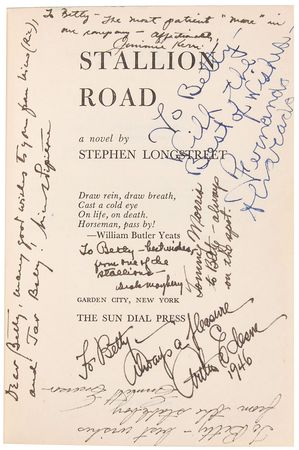 To Betty - The most patient "mare" in
our company - affectionately,
Jimmie Kerr
STALLION
ROAD
a novel by
STEPHEN LONGSTREET
To Betty -
With
Best of the
Wishes
Fernando
Draw rein, draw breath,
Cast a cold eye
On life, on death.
Horseman, pass by!
—William Butler Yeats
To Betty - best wishes
from one of the
stallions -
GARDEN CITY, NEW YORK
THE SUN DIAL PRESS
Tommy Morris
to Betty - always
on the spot.
Dear Betty, many good wishes to you from
and
To Betty -
Always a pleasure
1946
To Betty - best wishes
from the